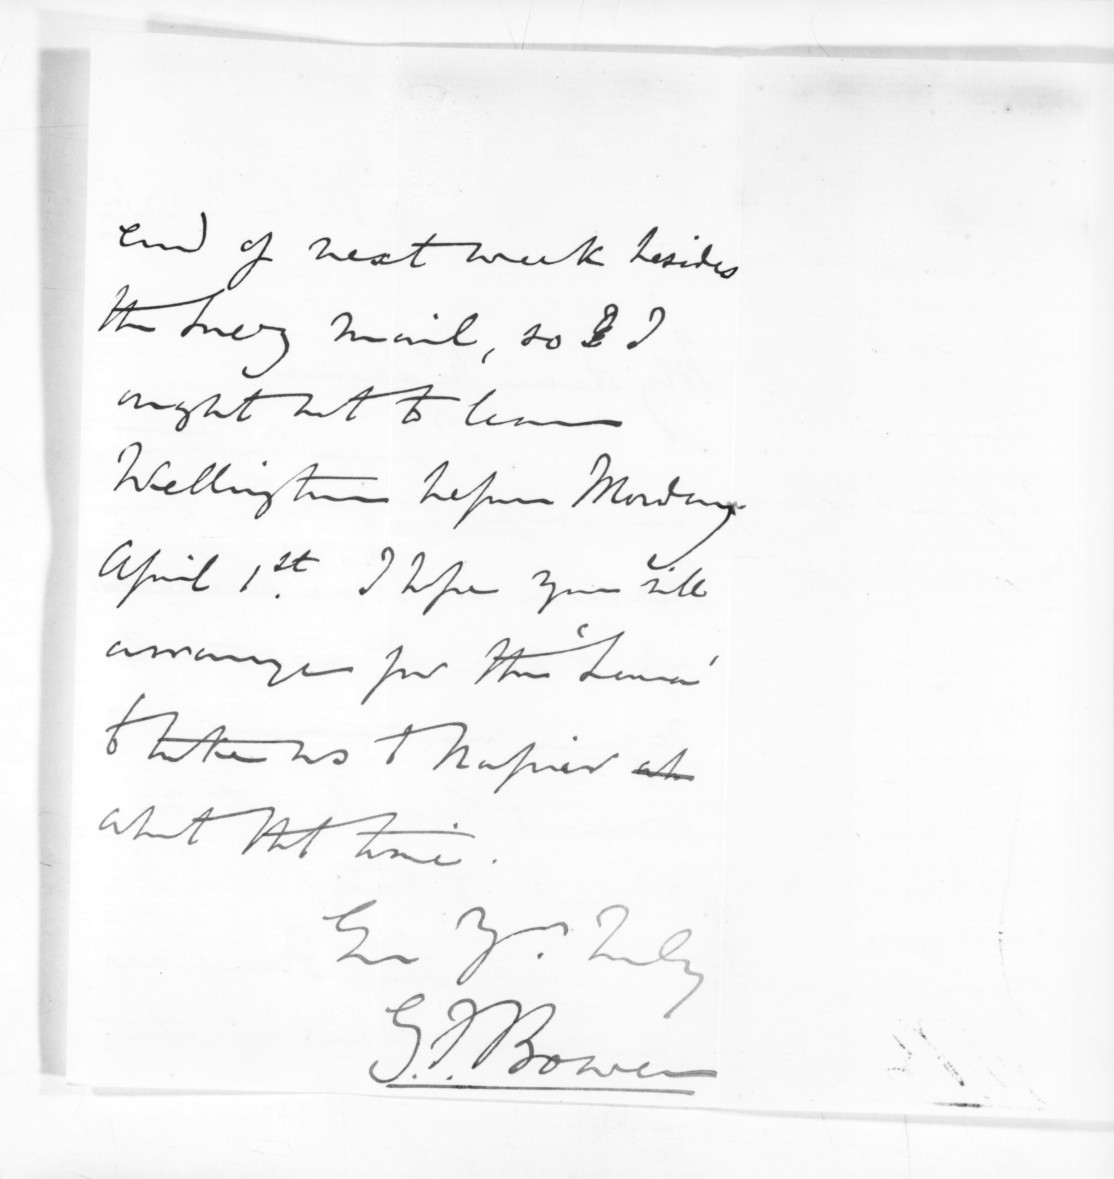 end of next week besides
the Suez Mail, so I
ought not to leave
Wellington before Monday
April 1st. I hope you will
arrange for the 'Luna'
to take us to Napier
about that time.
Ever Yrs. Truly
G.F. Bowen